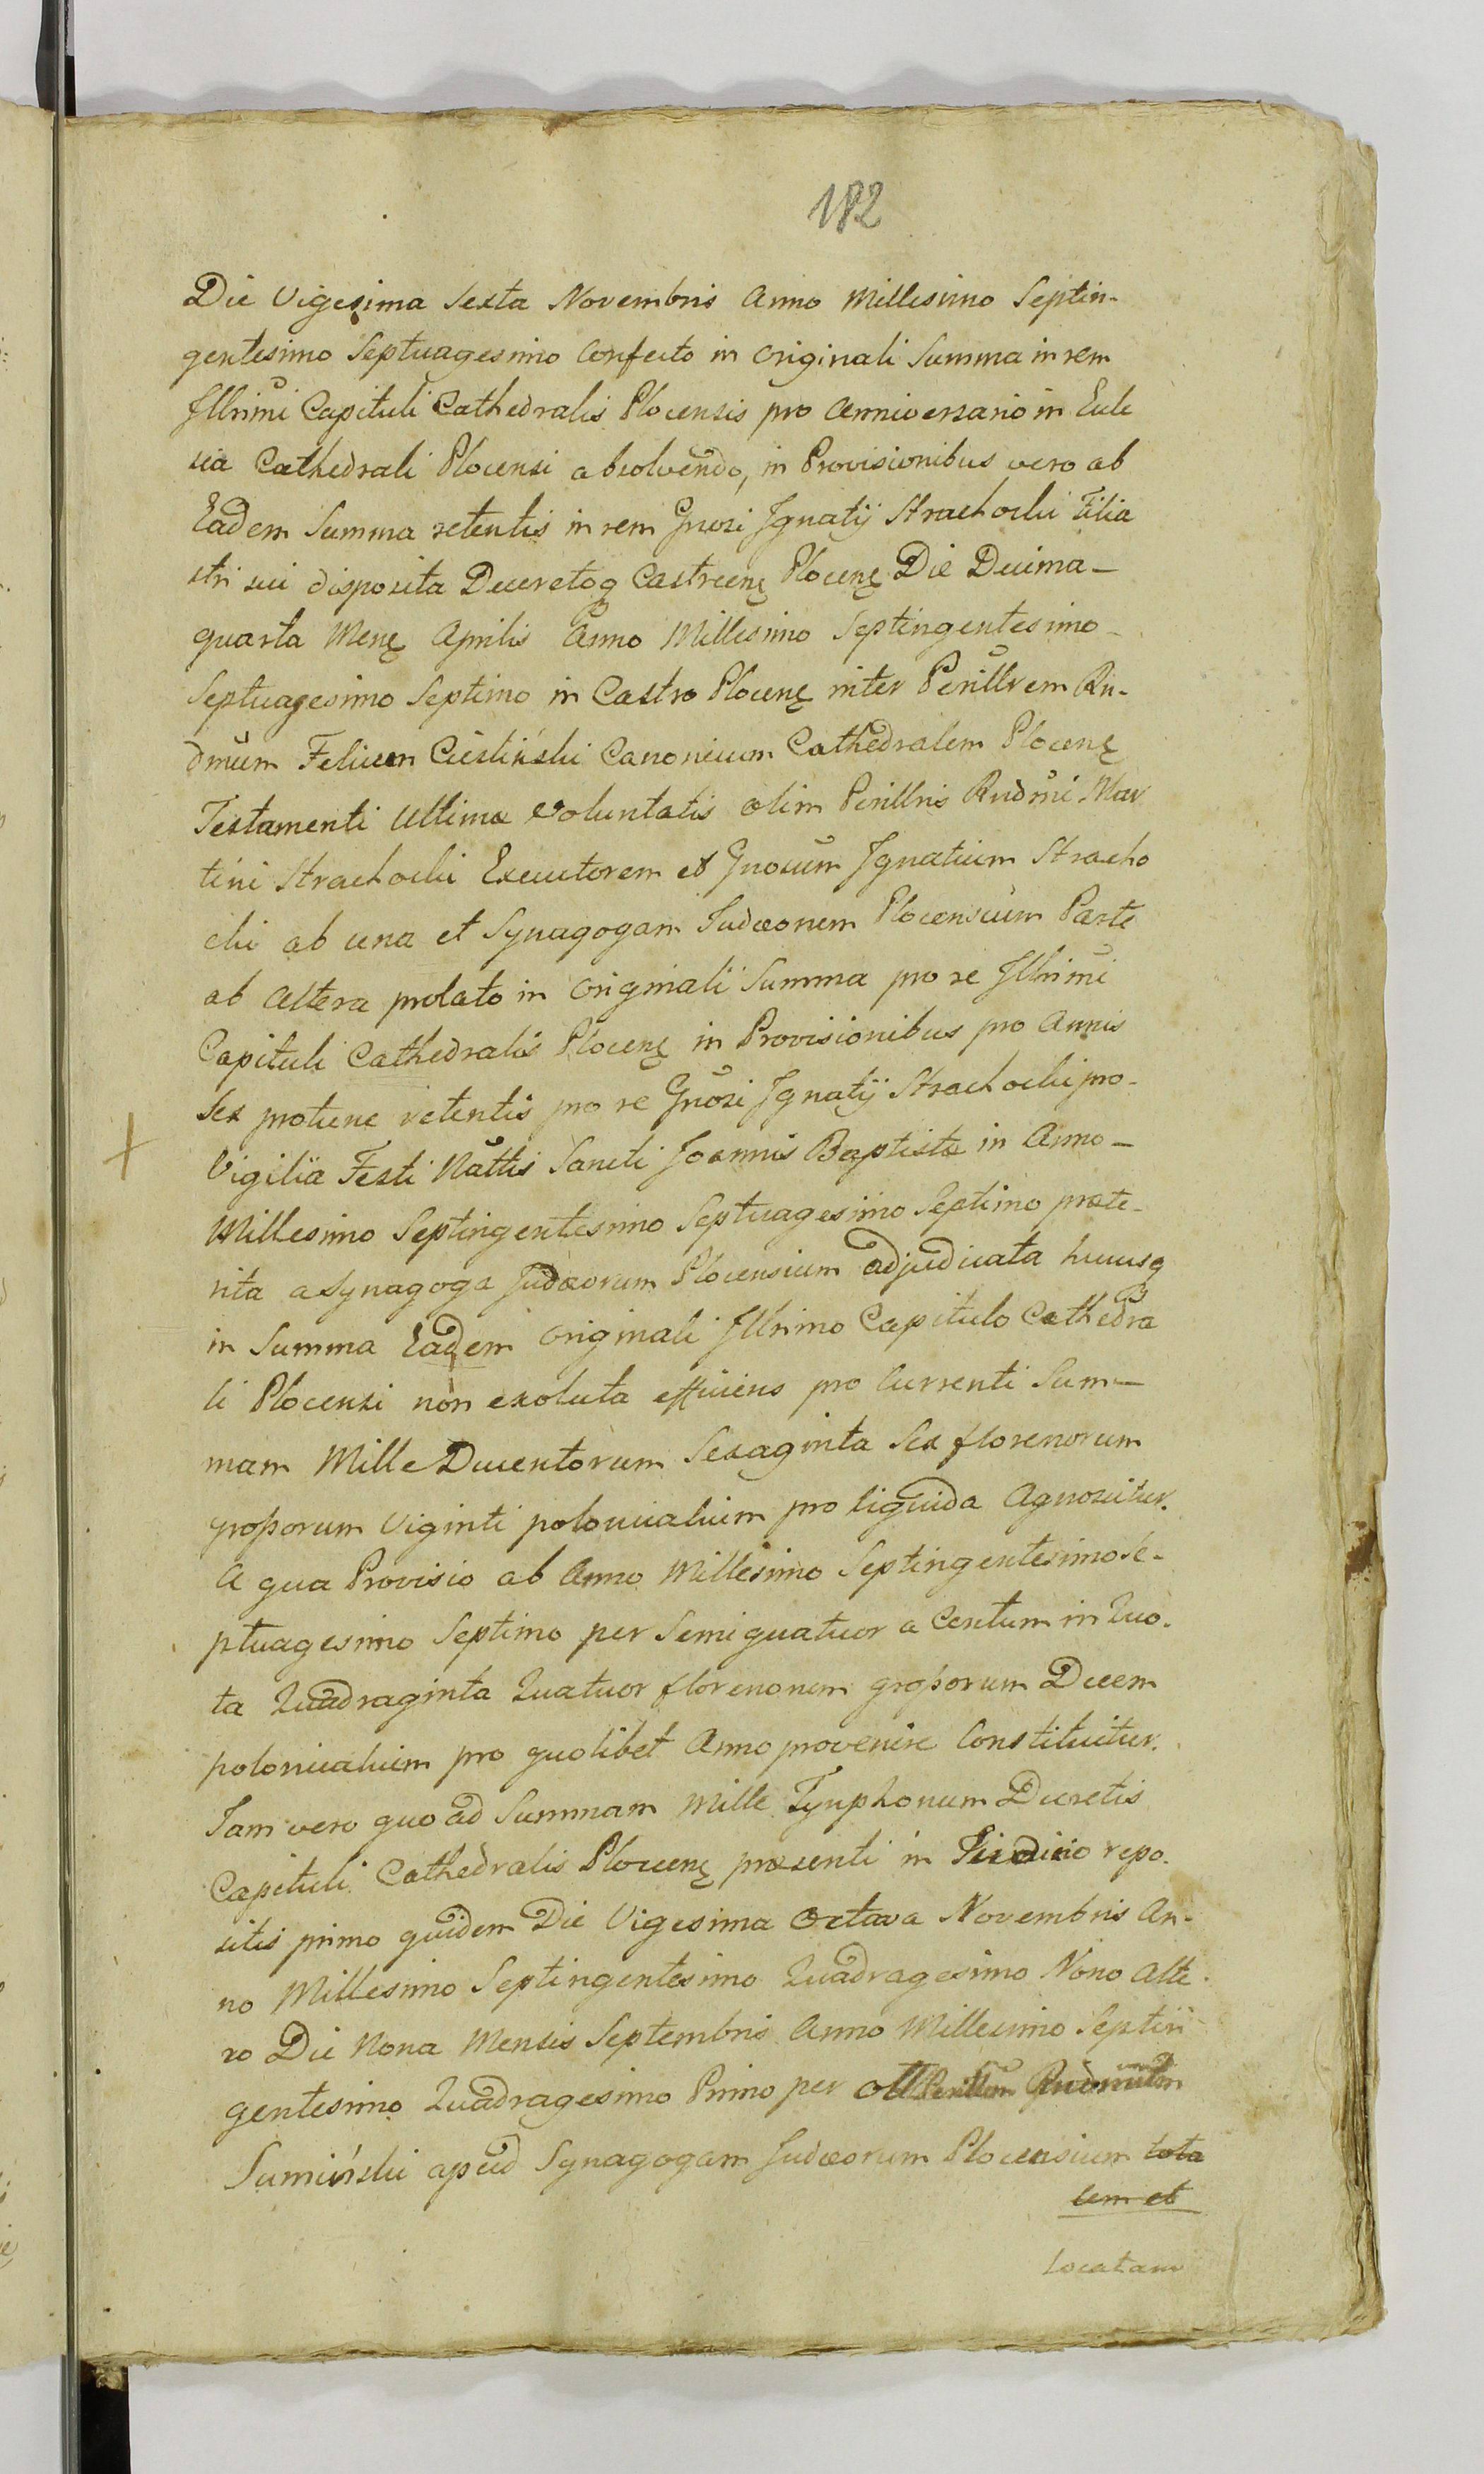 182
Die Vigesima Sexta Novembris Anno Millesimo Septin-
gentesimo Septuagesimo Confecto in Originali Summa in rem
Illrimi Capituli Cathedralis Plocensis pro Anniversario in Eccle
sia Cathedrali Plocensi absolvendo, in Provisionibus vero ab
Eadem Summa retentis in rem Gnosi Ignatij Strachocki Filia
stri sui disposita Decretoq Castrenę Plocenę Die Decima-
quarta Menę Aprilis Anno Millesimo Septingentesimo-
Septuagesimo Septimo in Castro Plocenę inter Perillrem Rn-
dmum Felicem Cieśliński Canonicum Cathedralem Plocenę
Testamenti Ultimæ Voluntatis olim Perillris Rndmi Mar
tini Strachocki Executorem et Gnosum Ignatium Stracho
cki ab una et Synagogam Judæorum Plocensium Parte
ab Altera prolato in Originali Summa pro re Illrimi
Capituli Cathedralis Plocenę in Provisionibus pro Annis
Sex protunc retentis pro re Gnosi Ignatij Strachocki pro-
Vigilia Festi Nattis Sancti Joannis Baptistæ in Anno-
Millesimo Septingentesimo Septuagesimo Septimo præte-
rita a Synagoga Judæorum Plocensium adjudicata hucusq
in Summa Eadem Originali Illrimo Capitulo Cathedra
li Plocensi non exoluta efficiens pro Currenti Sum-
mam Mille Ducentorum Sexaginta Sex florenorum
grossorum Viginti polonicalium pro liquida Agnoscitur.
A qua Provisio ab Anno Millesimo Septingentesimo Se-
ptuagesimo Septimo per Semiquatuor a Centum in Quo-
ta Quadraginta Quatuor florenorum grossorum Decem
polonicalium pro quolibet Anno provenire Constituitur.
Jam vero quo ad Summam Mille Tynphonum Decretis
Capituli Cathedralis Plocenę præsenti in Judicio repo-
sitis primo quidem Die Vigesima Octava Novembris An-
no Millesimo Septingentesimo Quadragesimo Nono Alte-
ro Die Nona Mensis Septembris Anno Millesimo Septin
gentesimo Quadragesimo Primo per Perillem Rndmum
Sumiński apud Synagogam Judæorum Plocensium tota
lem et
Locatam